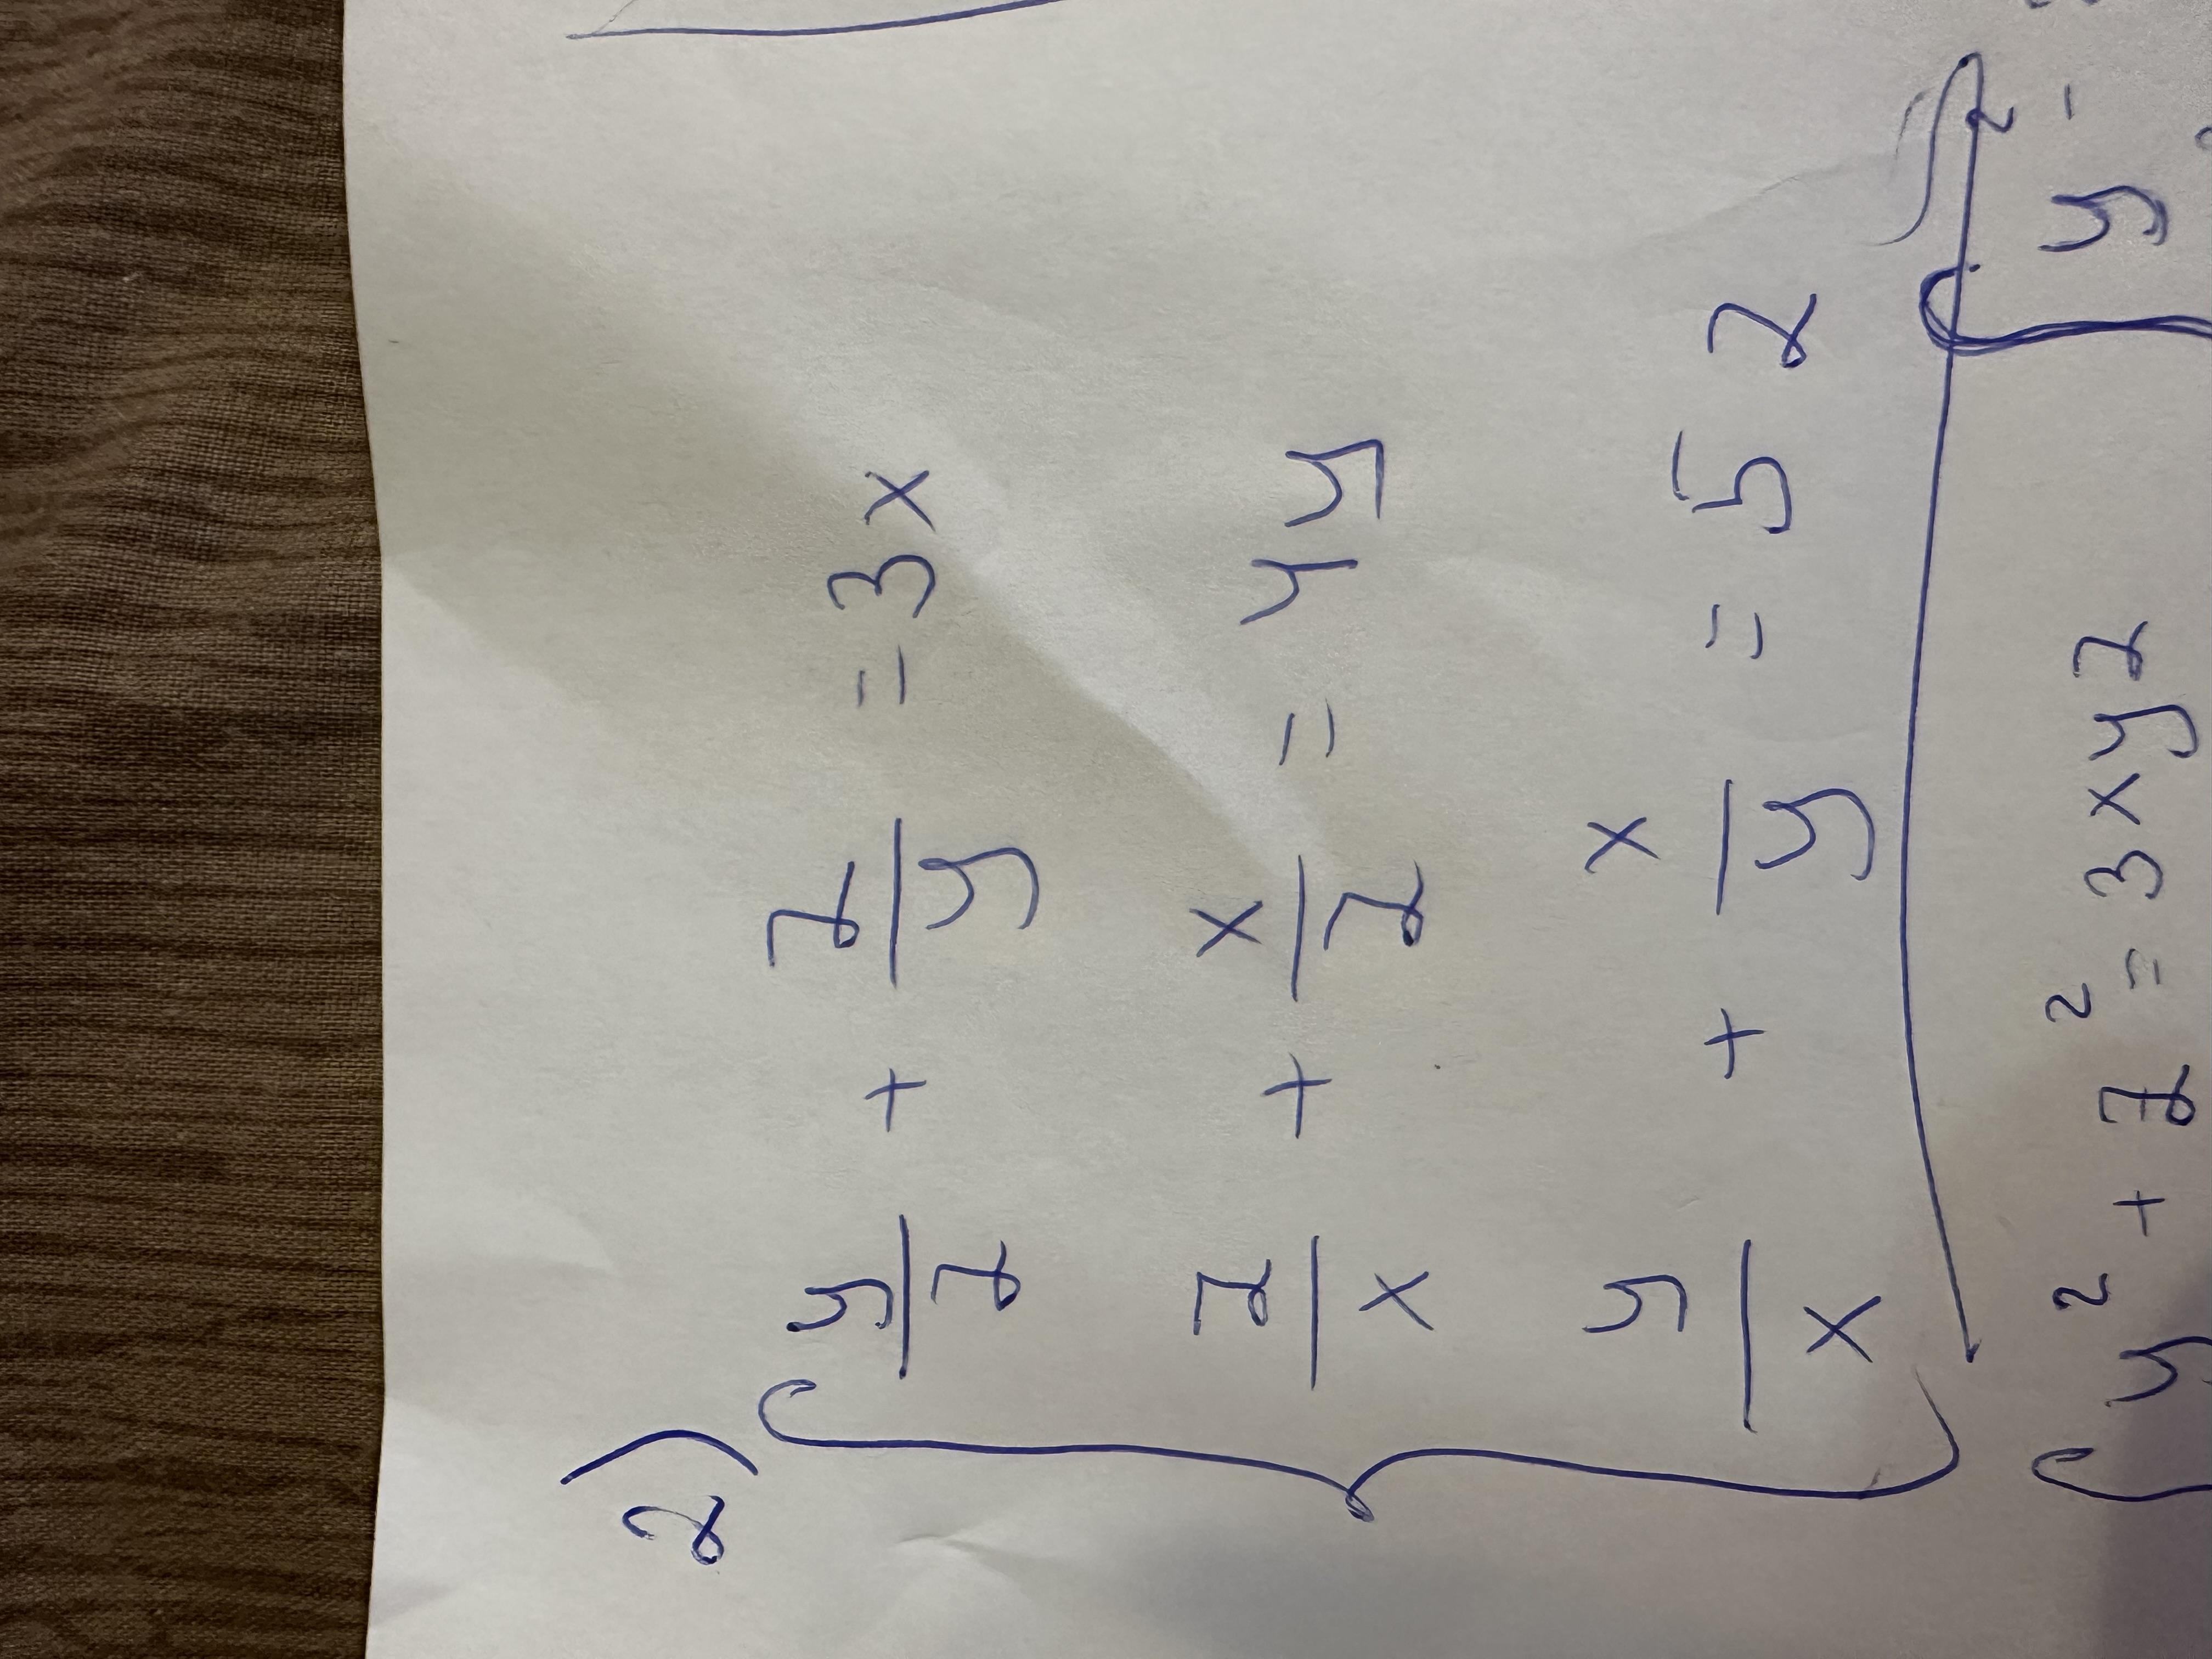 2)
y/z + z/y = 3x
z/x + x/z = 4y
y/x + x/y = 5z
y² + z² = 3xyz
y² -